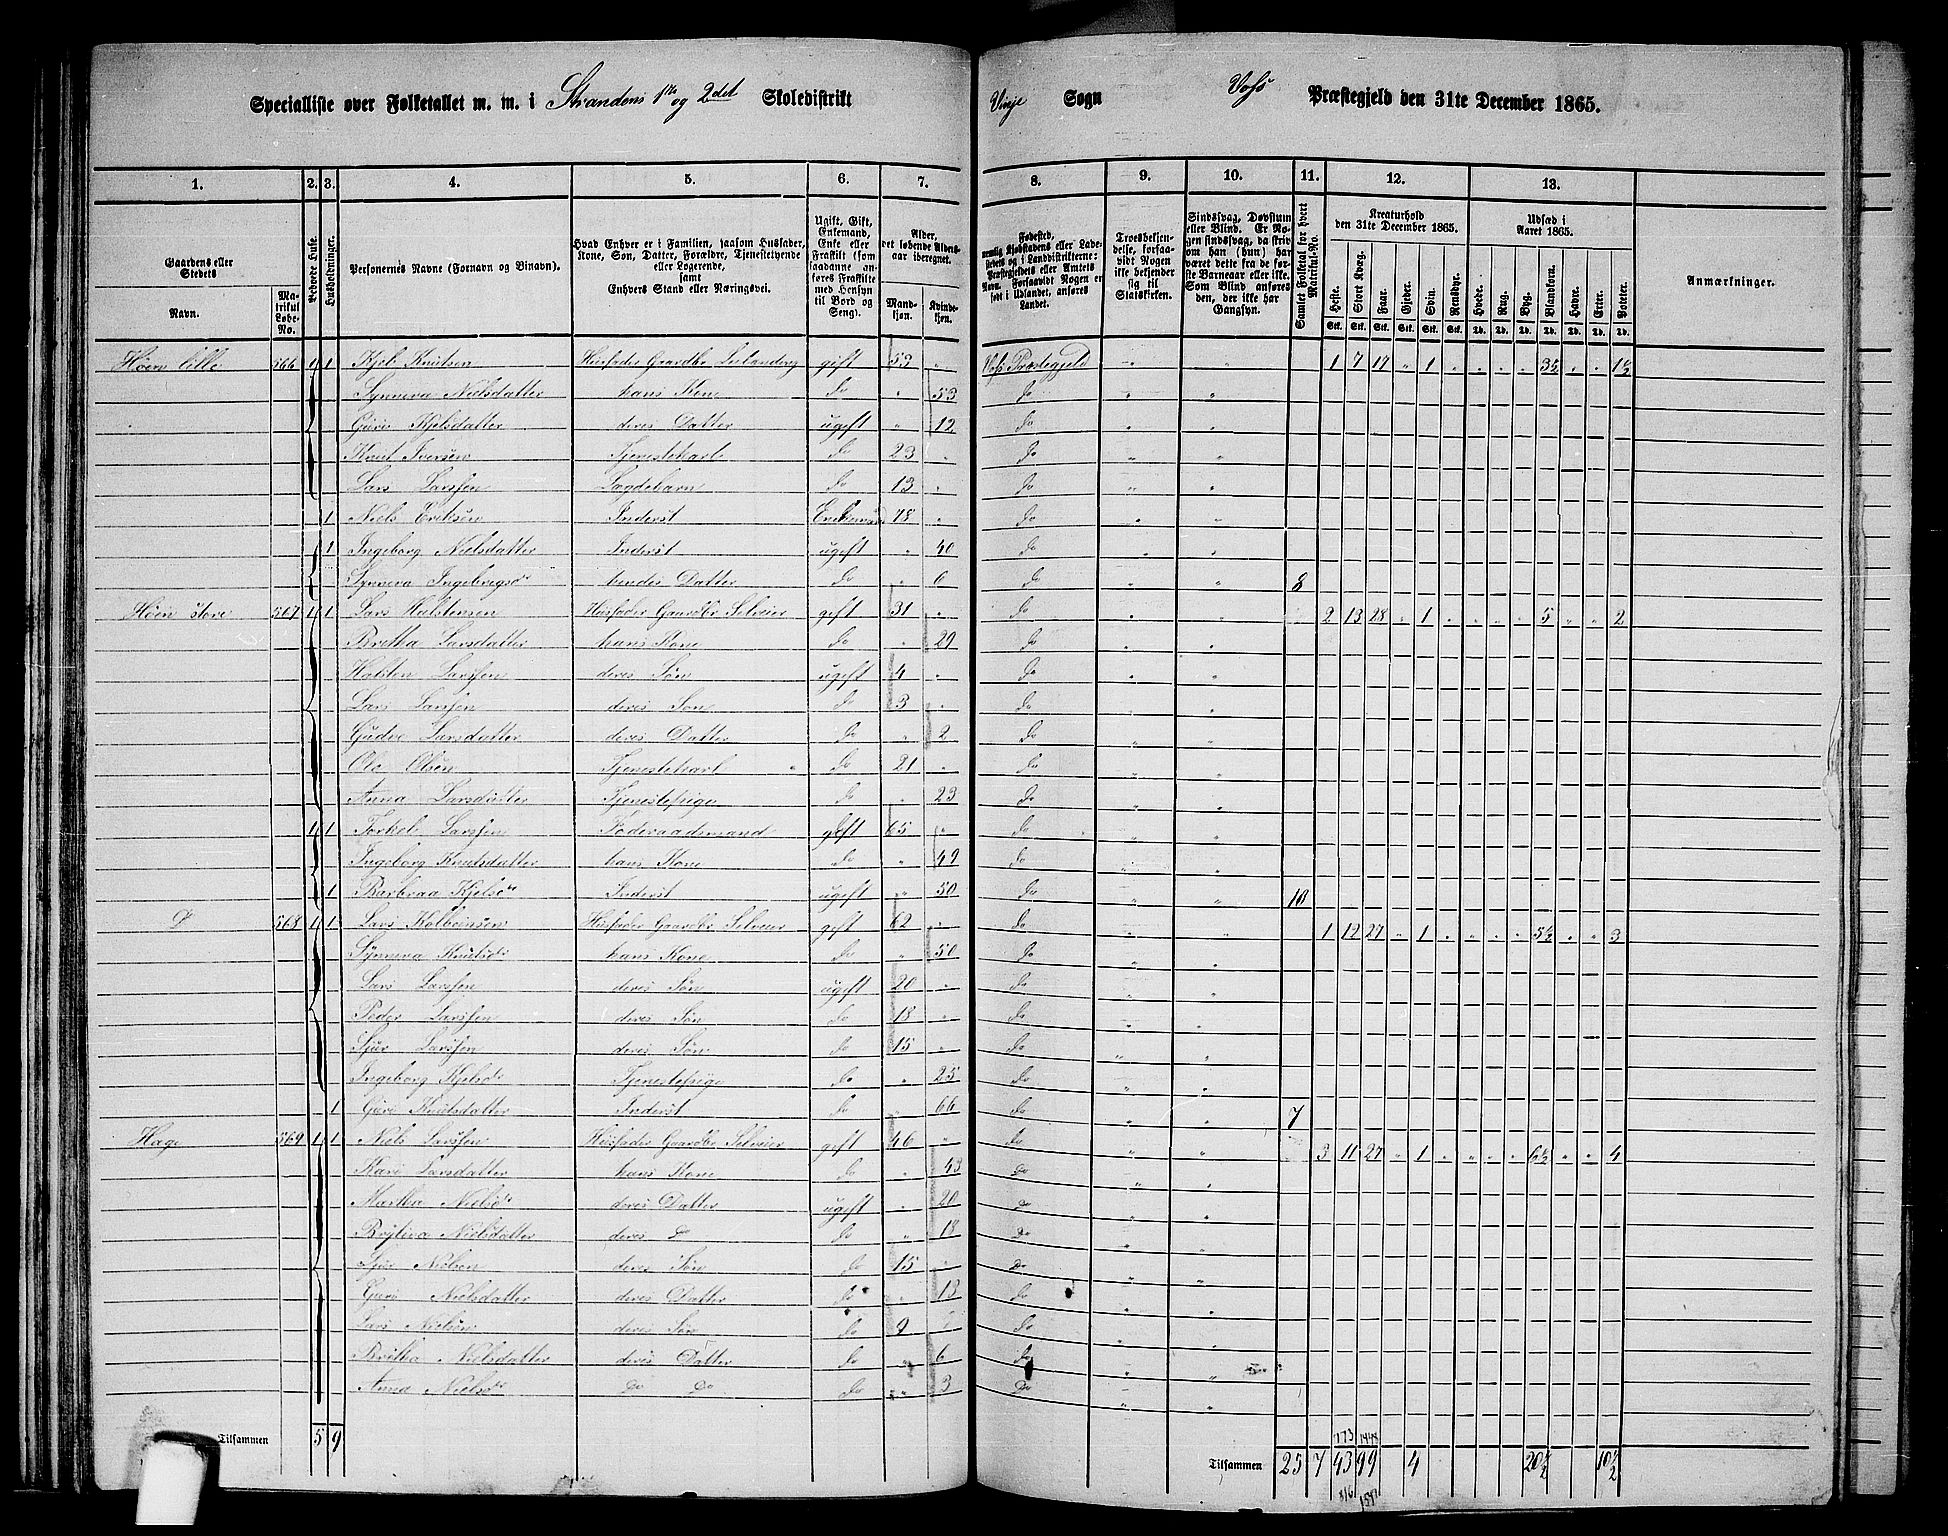 Specialliste over Folketallet m. m. i Strandens 1ste og 2det Skoledistrikt Vinje Sogn Voss Præstegjeld den 31te December 1865.
1. 2. 3. 4. 5. 6. 7. 8. 9. 10. 11. 12. 13.
Gaardens eller Stedets
Navn.
Matrikul Løbe-No.
Beboede Huse.
Husholdninger.
Personernes Navne (Fornavn og Binavn).
Hvad Enhver er i Familien, saasom Husfader, Kone, Søn, Datter, Forældre, Tjenestetyende eller Logerende,
samt
Enhvers Stand eller Næringsvei.
Ugift, Gift, Enkemand, Enke eller Fraskilt (som saadanne anføres Fraskilte med Hensyn til Bord og Seng).
Alder, det løbende Aldersaar iberegnet.
Mandkjøn. Kvindekjøn.
Fødested,
nemlig Kjøbstadens eller Ladestedets og i Landdistrikterne: Præstegjeldets eller Amtets Navn. Forsaavidt Nogen er født i Udlandet, anføres Landet.
Troesbekjendelse, forsaavidt Nogen ikke bekjender sig til Statskirken.
Sindssvag, Døvstum eller Blind. Er Nogen sindssvag, da skriv om han (hun) har været dette fra de første Barneaar eller ikke. Som Blind anføres den, der ikke har Gangsyn.
Samlet Folketal for hvert Matrikul-No.
Kreaturhold den 31te December 1865.
Heste. Stort Kvæg. Faar. Gjeder. Svin. Rensdyr.
Udsæd i Aaret 1865.
Hvede. Rug. Byg. Blandkorn. Havre. Erter. Poteter.
Stk. Stk. Stk. Stk. Stk. Stk. Td. Td. Td. Td. Td. Td. Td.
Anmærkninger.
Høen lille 566 1 1 Kjel Knutsen Husfader Gaardbr Leilænding gift 53 " Voss Præstegjeld " " 1 7 17 " 1 " " " " 3½ " " 1½
Synneva Nielsdatter hans Kone do " 53 do " "
Guri Kjelsdatter deres Datter ugift " 12 do " "
Knut Iversen Tjenestekarl do 23 " do " "
Lars Larssen Lægdebarn do 13 " do " "
1 Niels Eriksen Inderst Enkemand 78 " do " "
1 Ingeborg Nielsdatter Inderst ugift " 40 do " "
Synneva Ingebrigsdr hendes Datter do " 6 do " " 8
Høen store 567 1 1 Lars Halstensen Husfader Gaardbr Selveier gift 31 " do " " 2 13 28 " 1 " " " " 5 " " 2
Britha Larsdatter hans Kone do " 29 do " "
Halsten Larssen deres Søn ugift 4 " do " "
Lars Larssen deres Søn do 3 " do " "
Gudve Larsdatter deres Datter do " 2 do " "
Ole Olsen Tjenestekarl do 21 " do " "
Anna Larsdatter Tjenestepige do " 23 do " "
1 1 Torkel Larssen Føderaadsmand gift 65 " do " "
Ingeborg Knutsdatter hans Kone do " 49 do " "
1 Barbraa Kjelsdr Inderst ugift " 50 do " " 10
Do 568 1 1 Lars Kolbeinsen Husfader Gaardbr Selveier gift 62 " do " " 1 12 27 " 1 " " " " 5½ " " 3
Synneva Knutsdr hans Kone do " 50 do " "
Lars Larssen deres Søn ugift 20 " do " "
Peder Larssen deres Søn do 18 " do " "
Sjur Larssen deres Søn do 15 " do " "
Ingeborg Kjelsdr Tjenestepige do " 25 do " "
1 Guri Knutsdatter Inderst do " 66 do " " 7
Hage 569 1 1 Niels Larssen Husfader Gaardbr Selveier gift 46 " do " " 3 11 27 " 1 " " " " 6½ " " 4
Kari Larsdatter hans Kone do " 43 do " "
Martha Nielsdr deres Datter ugift " 20 do " "
Bryteva Nielsdatter deres do do " 18 do " "
Sjur Nielsen deres Søn do 15 " do " "
Guri Nielsdatter deres Datter do " 13 do " "
Lars Nielsen deres Søn do 9 " do " "
Britha Nielsdatter deres Datter do " 6 do " "
Anna Nielsdr do do do " 3 do " "
Tilsammen 5 9 Tilsammen 25 7 43 99 4 20½ 10½